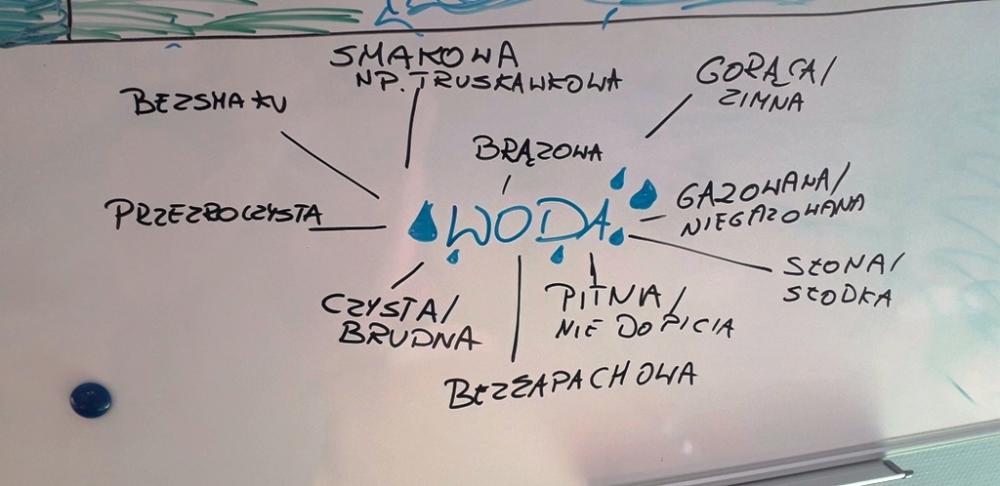 SMAKOWA
NP. TRUSKAWKOWA
GORĄCA/
ZIMNA
BEZSMAKU
BRĄZOWA
PRZEZROCZYSTA
WODA
GAZOWANA/
NIEGAZOWANA
SŁONA/
SŁODKA
CZYSTA/
BRUDNA
PITNA/
NIE DO PICIA
BEZZAPACHOWA